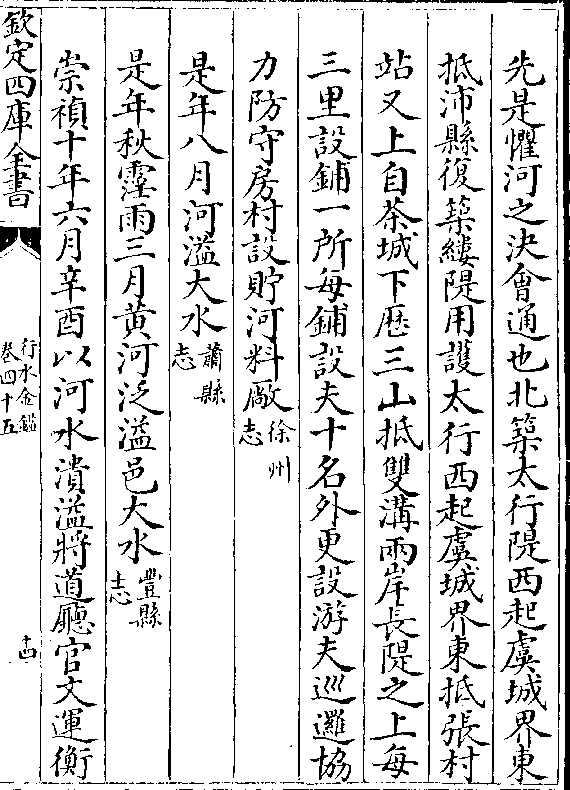 先是懼河之決會通也北築太行隄西起虞城界東
抵沛縣復築縷隄用護太行西起虞城界東抵張村
站又上自茶城下歷三山抵雙溝兩岸長隄之上每
三里設鋪一所每鋪設夫十名外更設游夫巡邏協
力防守房村設貯河料廠徐州志
是年八月河溢大水蕭縣志
是年秋霪雨三月黃河泛溢邑大水豐縣志
崇禎十年六月辛酉以河水潰溢將道廳官文運衡
欽定四庫全書
行水金鑑
卷四十五
十四